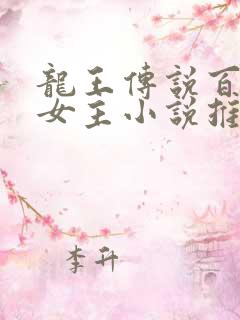 龍王傳說百
女主小說推
李升